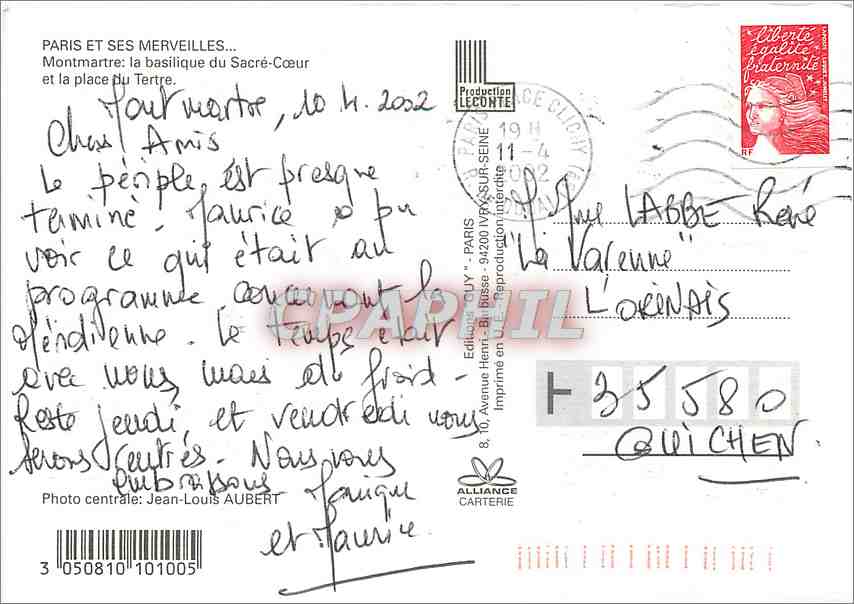 PARIS ET SES MERVEILLES...
Montmartre: la basilique du Sacré-Cœur
et la place du Tertre.
Montmartre, 10 4. 2002
Chers Amis
Le périple est presque
terminé. Maurice a pu
voir ce qui était au
programme concernant la
Méridienne. Le temps était
avec nous mais du froid -
Reste jeudi, et vendredi nous
serons rentrés. Nous vous
embrassons
et Maurice.
Photo centrale: Jean-Louis AUBERT
3 050810 101005
Production
LECONTE
Editions "GUY" - PARIS
8, 10, Avenue Henri - Barbusse - 94200 IVRY-SUR-SEINE
Imprimé en U.E. - Reproduction interdite
ALLIANCE
CARTERIE
PARIS PLACE CLICHY
19 H
11-4
2002
liberté
égalité
fraternité
RF
LABBE René
"La Varenne"
L'ORINAIS
35580
GUICHEN.
CPAPHIL